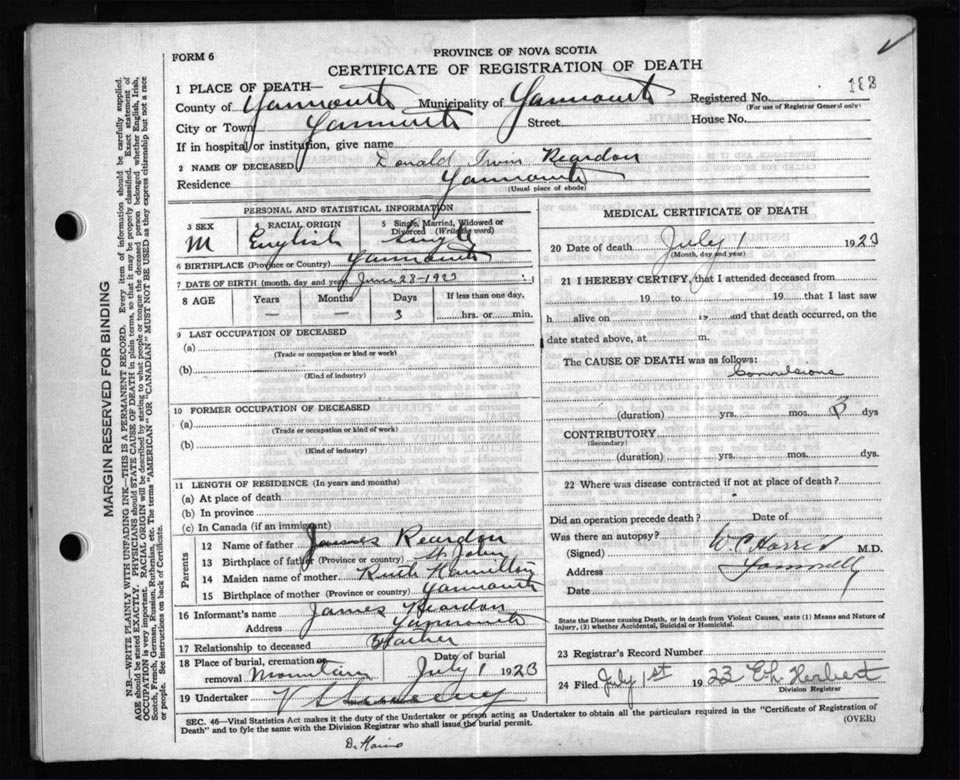 FORM 6
PROVINCE OF NOVA SCOTIA
CERTIFICATE OF REGISTRATION OF DEATH
1 PLACE OF DEATH—
County of Yarmouth Municipality of Yarmouth Registered No. 182
(For use of Registrar General only)
City or Town Yarmouth Street House No.
If in hospital or institution, give name
2 NAME OF DECEASED Donald Irvin Reardon
Residence Yarmouth
(Usual place of abode)
PERSONAL AND STATISTICAL INFORMATION
3 SEX 4 RACIAL ORIGIN 5 Single, Married, Widowed or Divorced (Write the word)
M English Single
6 BIRTHPLACE (Province or Country) Yarmouth
7 DATE OF BIRTH (month, day and year) June 28-1923
8 AGE Years Months Days If less than one day,
— — 3 hrs. or min.
9 LAST OCCUPATION OF DECEASED
(a)
(Trade or occupation or kind or work)
(b)
(Kind of industry)
10 FORMER OCCUPATION OF DECEASED
(a)
(Trade or occupation or kind of work)
(b)
(Kind of industry)
11 LENGTH OF RESIDENCE (In years and months)
(a) At place of death
(b) In province
(c) In Canada (if an immigrant)
Parents
12 Name of father James Reardon
13 Birthplace of father (Province or country) St. John
14 Maiden name of mother Ruth Hamilton
15 Birthplace of mother (Province or country) Yarmouth
16 Informant's name James Reardon
Address Yarmouth
17 Relationship to deceased Father
18 Place of burial, cremation or removal Mountain Date of burial July 1 1923
19 Undertaker V S Sweeny
MEDICAL CERTIFICATE OF DEATH
20 Date of death July 1 1923
(Month, day and year)
21 I HEREBY CERTIFY, that I attended deceased from
19 to 19 that I last saw
h alive on 19 and that death occurred, on the
date stated above, at m.
The CAUSE OF DEATH was as follows:
Convulsions
(duration) yrs. mos. 3 dys
CONTRIBUTORY
(Secondary)
(duration) yrs. mos. dys.
22 Where was disease contracted if not at place of death?
Did an operation precede death? Date of
Was there an autopsy?
(Signed) W.C. Harris M.D.
Address
Date
State the Disease causing Death, or in death from Violent Causes, state (1) Means and Nature of
Injury, (2) whether Accidental, Suicidal or Homicidal.
23 Registrar's Record Number
24 Filed July 1st 1923 Herbert
Division Registrar
SEC. 46—Vital Statistics Act makes it the duty of the Undertaker or person acting as Undertaker to obtain all the particulars required in the "Certificate of Registration of
Death" and to fyle the same with the Division Registrar who shall issue the burial permit. (OVER)
MARGIN RESERVED FOR BINDING
N.B.—WRITE PLAINLY WITH UNFADING INK—THIS IS A PERMANENT RECORD. Every item of information should be carefully supplied.
AGE should be stated EXACTLY. PHYSICIANS should STATE CAUSE OF DEATH in plain terms, so that it may be properly classified. Exact statement of
OCCUPATION is very important. RACIAL ORIGIN will be described by stating to what people or tongue the deceased person belonged whether English, Irish,
Scotch, French, German, Russian, Ruthenian, etc. The terms "AMERICAN" OR "CANADIAN" MUST NOT BE USED as they express citizenship but not a race
or people. See instructions on back of Certificate.